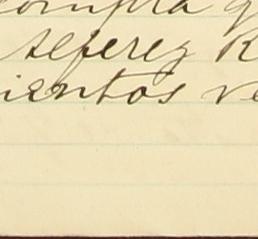 compra q
Alferez R
ientos ve